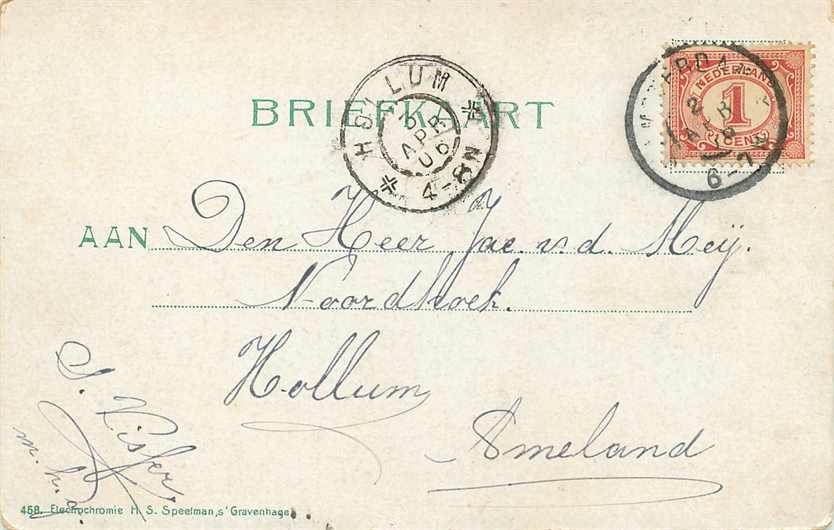 BRIEFKAART
HOLLUM
APR
06
4-8N
NEDERLAND
1
CENT
6-7
AAN Den Heer Jac. v.d. Meij.
Noordhoek.
Hollum
Ameland
S. Visser
m.h.g.
458. Electrochromie H. S. Speelman, s' Gravenhage